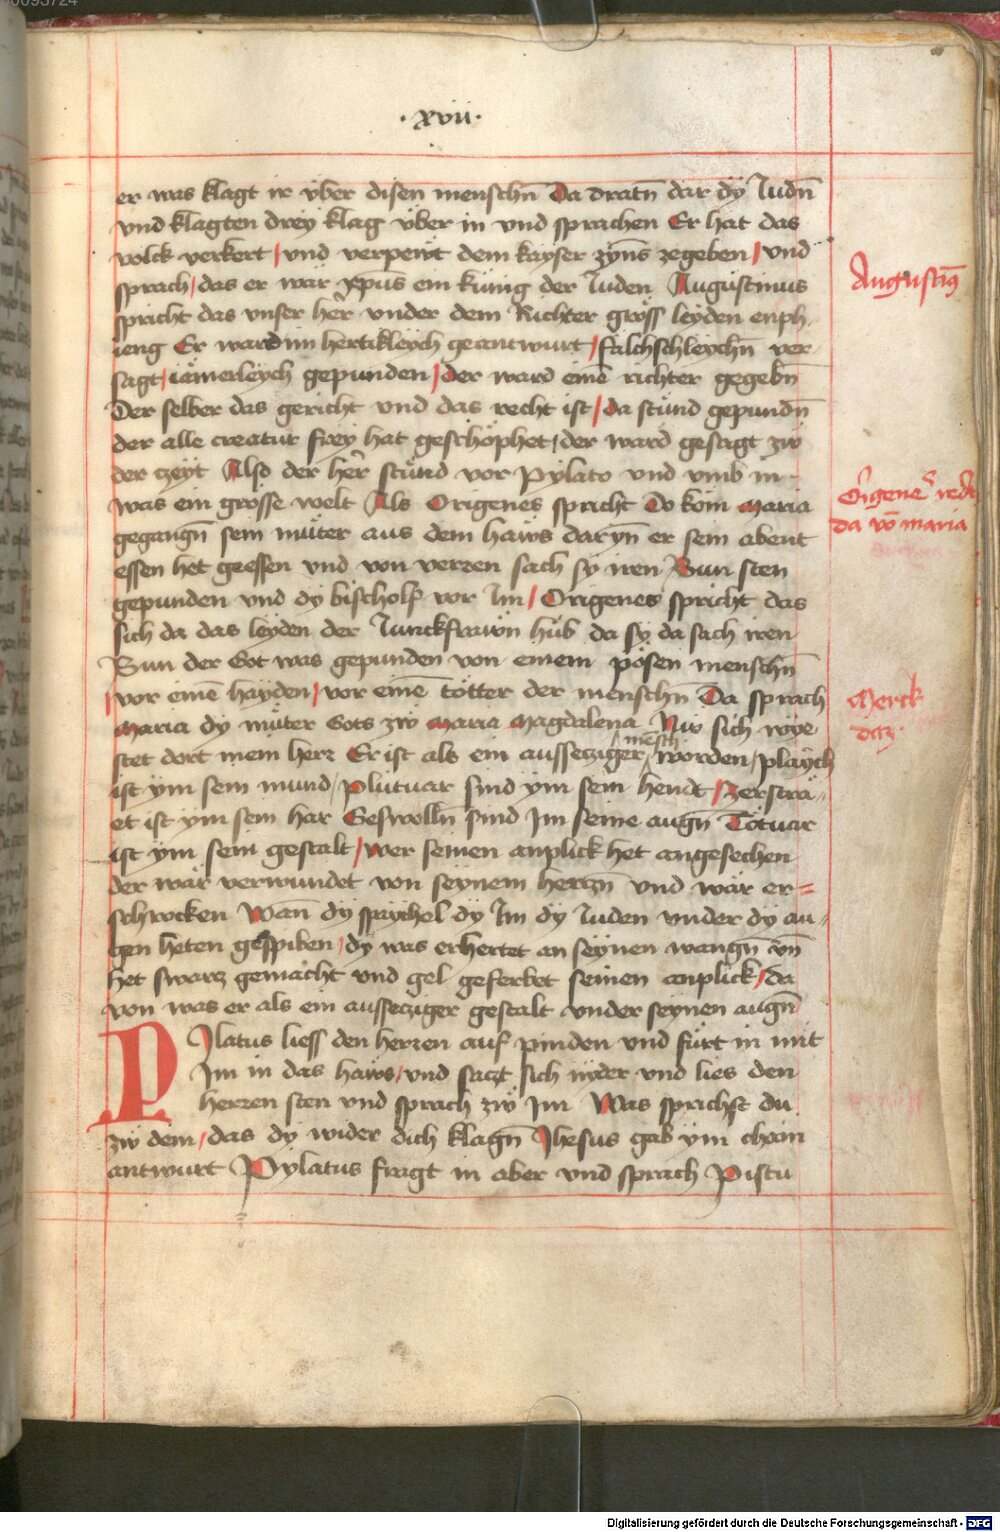 00093724
·xvii·
er was klagt ir vber disen menschn̄ Da dratn̄ dar dy Iudn̄
vnd klagten drey klag vber in vnd sprachen Er hat das
volck verkert / vnd verpewt dem kayser zyns̄ zegeben / vnd
sprach / das er wär xp̄us ein künig der Iuden Augustinus
Augustin9
spricht das vnser her̄ vnder dem Richter gröss leyden enph
ieng Er ward im hertikleych geantwurt / falchschleychn̄ ver
sagt / iämerleych gepunden / der ward einē richter gegebn̄
Der selber das gericht vnd das recht ist / da stund gepundn̄
der alle creatur frey hat geschöphet / der ward gesagt zw
der zeyt Also der her̄ stund vor Pylato vnd vmb in
was ein grosse welt Als Origenes spricht Do kom maria
Origene redt
da vō maria
gegangn̄ sein muter aus dem haws daryn̄ er sein abent
essen het geessen vnd von verren sach sy iren Sun sten
gepunden vnd dy bischolf vor Im / Origenes spricht das
sich da das leyden der Iunckfrawn hub da sy da sach iren
Sun der Got was gepunden von einem pösen menschn̄
/ vor einē hayden / vor einē tötter der menschn̄ Da sprach
Merck
daz
maria dy muter Gots zw maria magdalena Nw sich wye
stet dort mein herr Er ist als ein aussecziger mēsch worden / playch
ist ym sein mund / plutuar sind ym sein hendt / zerströ
et ist ym sein har Geswolln̄ sind Im seine augn̄ Totuar
ist ym sein gestalt / wer seinen anplick het angesechen
der wär verwundet von seynem herczn̄ vnd wär er=
schrocken Wan̄ dy spaychel dy Im dy Iuden vnder dy au
gen heten gespiben / dy was erhertet an seynen wangn̄ vn̄
het swarz gemacht vnd gel geferbet seinen anplick / da
von was er als ein aussecziger gestalt vnder seynen augn̄
PIlatus liess den herren auf pinden vnd fürt in mit
Im in das haws / vnd saczt sich nyder vnd lies den
herren sten vnd sprach zw Im Was sprichst du
zw dem / das dy wider dich klagn̄ Ihesus gab ym chain
antwurt Pylatus fragt in aber vnd sprach Pistu
Digitalisierung gefördert durch die Deutsche Forschungsgemeinschaft - DFG